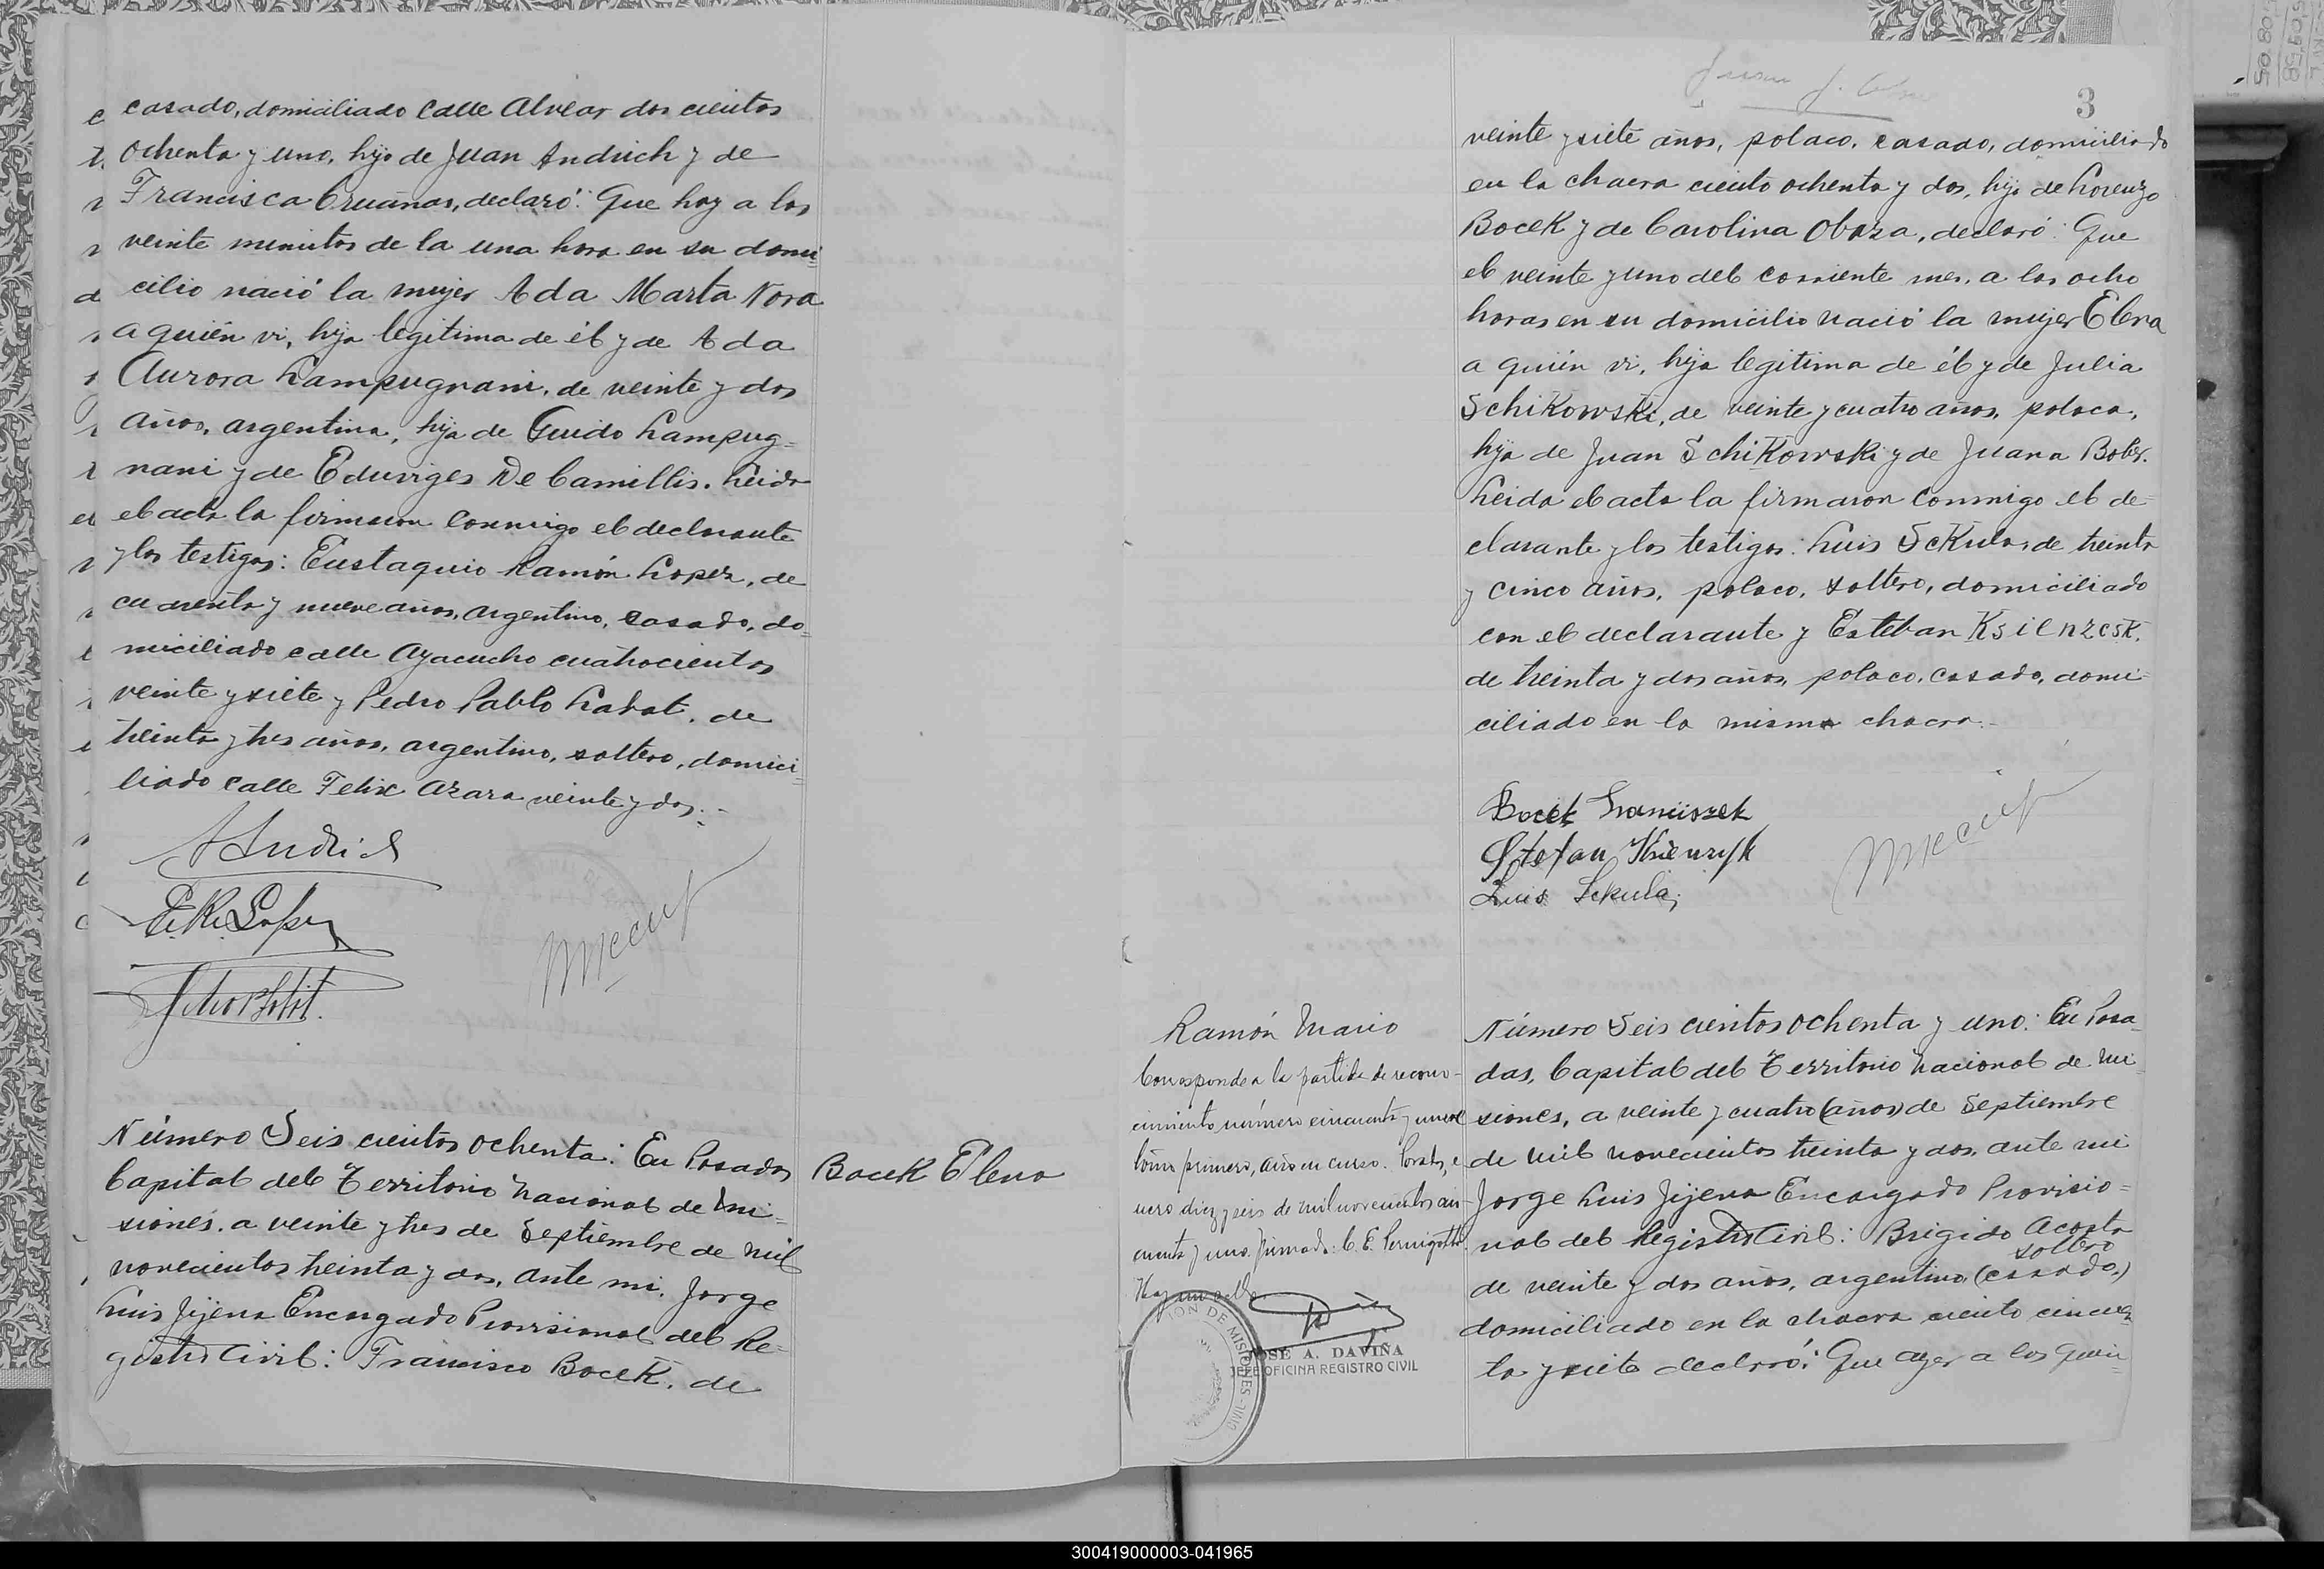 casado, domiciliado calle Alvear dos cientos
ochenta y uno, hijo de Juan Andrich y de
Francisca Cruañas, declaró: Que hoy a los
veinte minutos de la una hora en su domi=
cilio nació la mujer Ada Marta Nora
a quién vi, hija legitima de él y de Ada
Aurora Lampugnani, de veinte y dos
años, argentina, hija de Guido Lampug=
nani y de Eduviges De Camillis. Leida
el acta la firmaron conmigo el declarante
y los testigos: Eustaquio Ramón Lopez, de
cuarenta y nueve años, argentino, casado, do=
miciliado calle Ayacucho cuatrocientos
veinte y siete y Pedro Pablo Labat, de
treinta y tres años, argentino, soltero, domici=
liado calle Felix Azara veinte y dos.-
Número Seis cientos ochenta: En Posadas
Capital del Territorio Nacional de Mi=
siones, a veinte y tres de Septiembre de mil
novecientos treinta y dos, ante mi, Jorge
Luis Jijena Encargado Provisional del Re=
gistro Civil: Francisco Bocek, de
Bocek Elena
3
veinte y siete años, polaco, casado, domiciliado
en la chacra ciento ochenta y dos, hijo de Lorenzo
Bocek y de Carolina Obaza, declaró: Que
el veinte y uno del corriente mes, a las ocho
horas en su domicilio nació la mujer Elena
a quién vi, hija legitima de él y de Julia
Schikowski, de veinte y cuatro años, polaca,
hija de Juan Schikowski y de Juana Bober.
Leida el acta la firmaron conmigo el de=
clarante y los testigos: Luis Sekula, de treinta
y cinco años, polaco, soltero, domiciliado
con el declarante y Esteban Ksienzcsk.
de treinta y dos años, polaco, casado, domi=
ciliado en la misma chacra.-
Bocek Franciszek
Stefan
Luis Sekula
Ramón Mario
Corresponde a la partida de recono-
cimiento número cincuenta y nueve
tomo primero, año en curso. Posadas, e
nero diez y seis de mil novecientos cin
cuenta y uno. Firmado: C. E. Pernigotti
Hay un sello
JOSE A. DAVIÑA
JEFE OFICINA REGISTRO CIVIL
Número Seis cientos ochenta y uno: En Posa
das, Capital del Territorio Nacional de Mi
siones, a veinte y cuatro (años) de Septiembre
de mil novecientos treinta y dos, ante mi
Jorge Luis Jijena Encargado Provisio=
nal del Registro Civil: Brigido Acosta
soltero
de veinte y dos años, argentino, (casado,)
domiciliado en la chacra ciento cincuen
ta y siete declaró: Que ayer a las quin
300419000003-041965